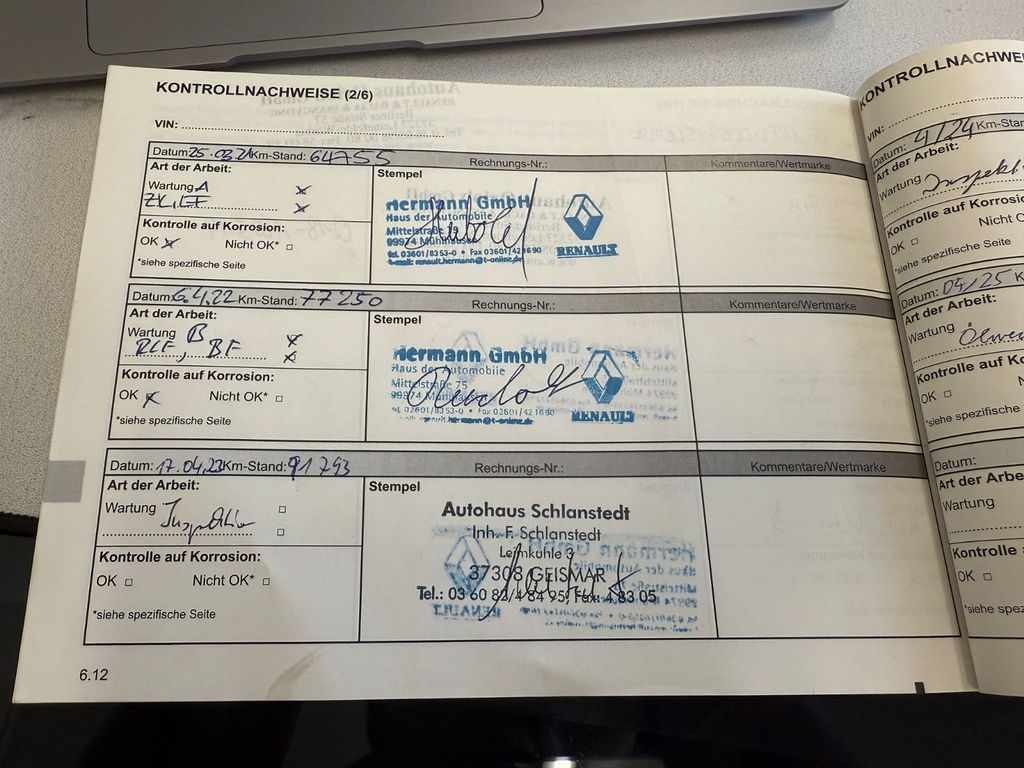 KONTROLLNACHWEISE (2/6)
VIN:
Datum: 25.03.21 Km-Stand: 64755 Rechnungs-Nr.: Kommentare/Wertmarke
Art der Arbeit: Stempel
Wartung A x
ZK, LF x
Kontrolle auf Korrosion:
OK x Nicht OK* □
*siehe spezifische Seite
Hermann GmbH
Haus der Automobile
Mittelstraße 75
99974 Mühlhausen
tel. 03601/8353-0 • Fax 03601/421690
e-mail: renault.hermann@t-online.de
RENAULT
Datum: 6.4.22 Km-Stand: 77250 Rechnungs-Nr.: Kommentare/Wertmarke
Art der Arbeit: Stempel
Wartung B x
BF x
Kontrolle auf Korrosion:
OK x Nicht OK* □
*siehe spezifische Seite
Hermann GmbH
Haus der Automobile
Mittelstraße 75
99974 Mühlhausen
tel. 03601/8353-0 • Fax 03601/421690
renault.hermann@t-online.de
RENAULT
Datum: 17.04.23 Km-Stand: 91793 Rechnungs-Nr.: Kommentare/Wertmarke
Art der Arbeit: Stempel
Wartung Inspektion □
□
Kontrolle auf Korrosion:
OK □ Nicht OK* □
*siehe spezifische Seite
Autohaus Schlanstedt
Inh. F. Schlanstedt
Lehnkuhle 3
37308 GEISMAR
Tel.: 03 60 82/4 84 95, Fax: 4 83 05
6.12
KONTROLLNACHWE
VIN:
Datum: 4/24 Km-Stan
Art der Arbeit:
Wartung Inspekt
Kontrolle auf Korrosio
OK □ Nicht O
*siehe spezifische Seite
Datum: 04/25 K
Art der Arbeit:
Wartung
Kontrolle auf Ko
OK □
*siehe spezifische
Datum:
Art der Arbe
Wartung
Kontrolle a
OK □
*siehe spez